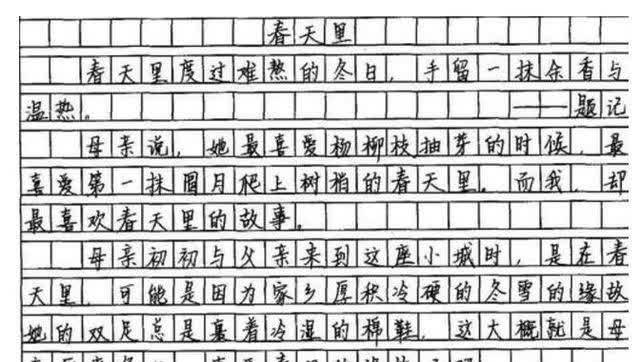 春天里
春天里度过难熬的冬日，手留一抹余香与
温热。——题记
母亲说，她最喜爱杨柳枝抽芽的时候，最
喜爱第一抹眉月爬上树梢的春天里。而我，却
最喜欢春天里的故事。
母亲初初与父亲来到这座小城时，是在春
天里，可能是因为家乡厚积冷硬的冬雪的缘故
她的双足总是裹着冷湿的棉鞋，这大概就是母